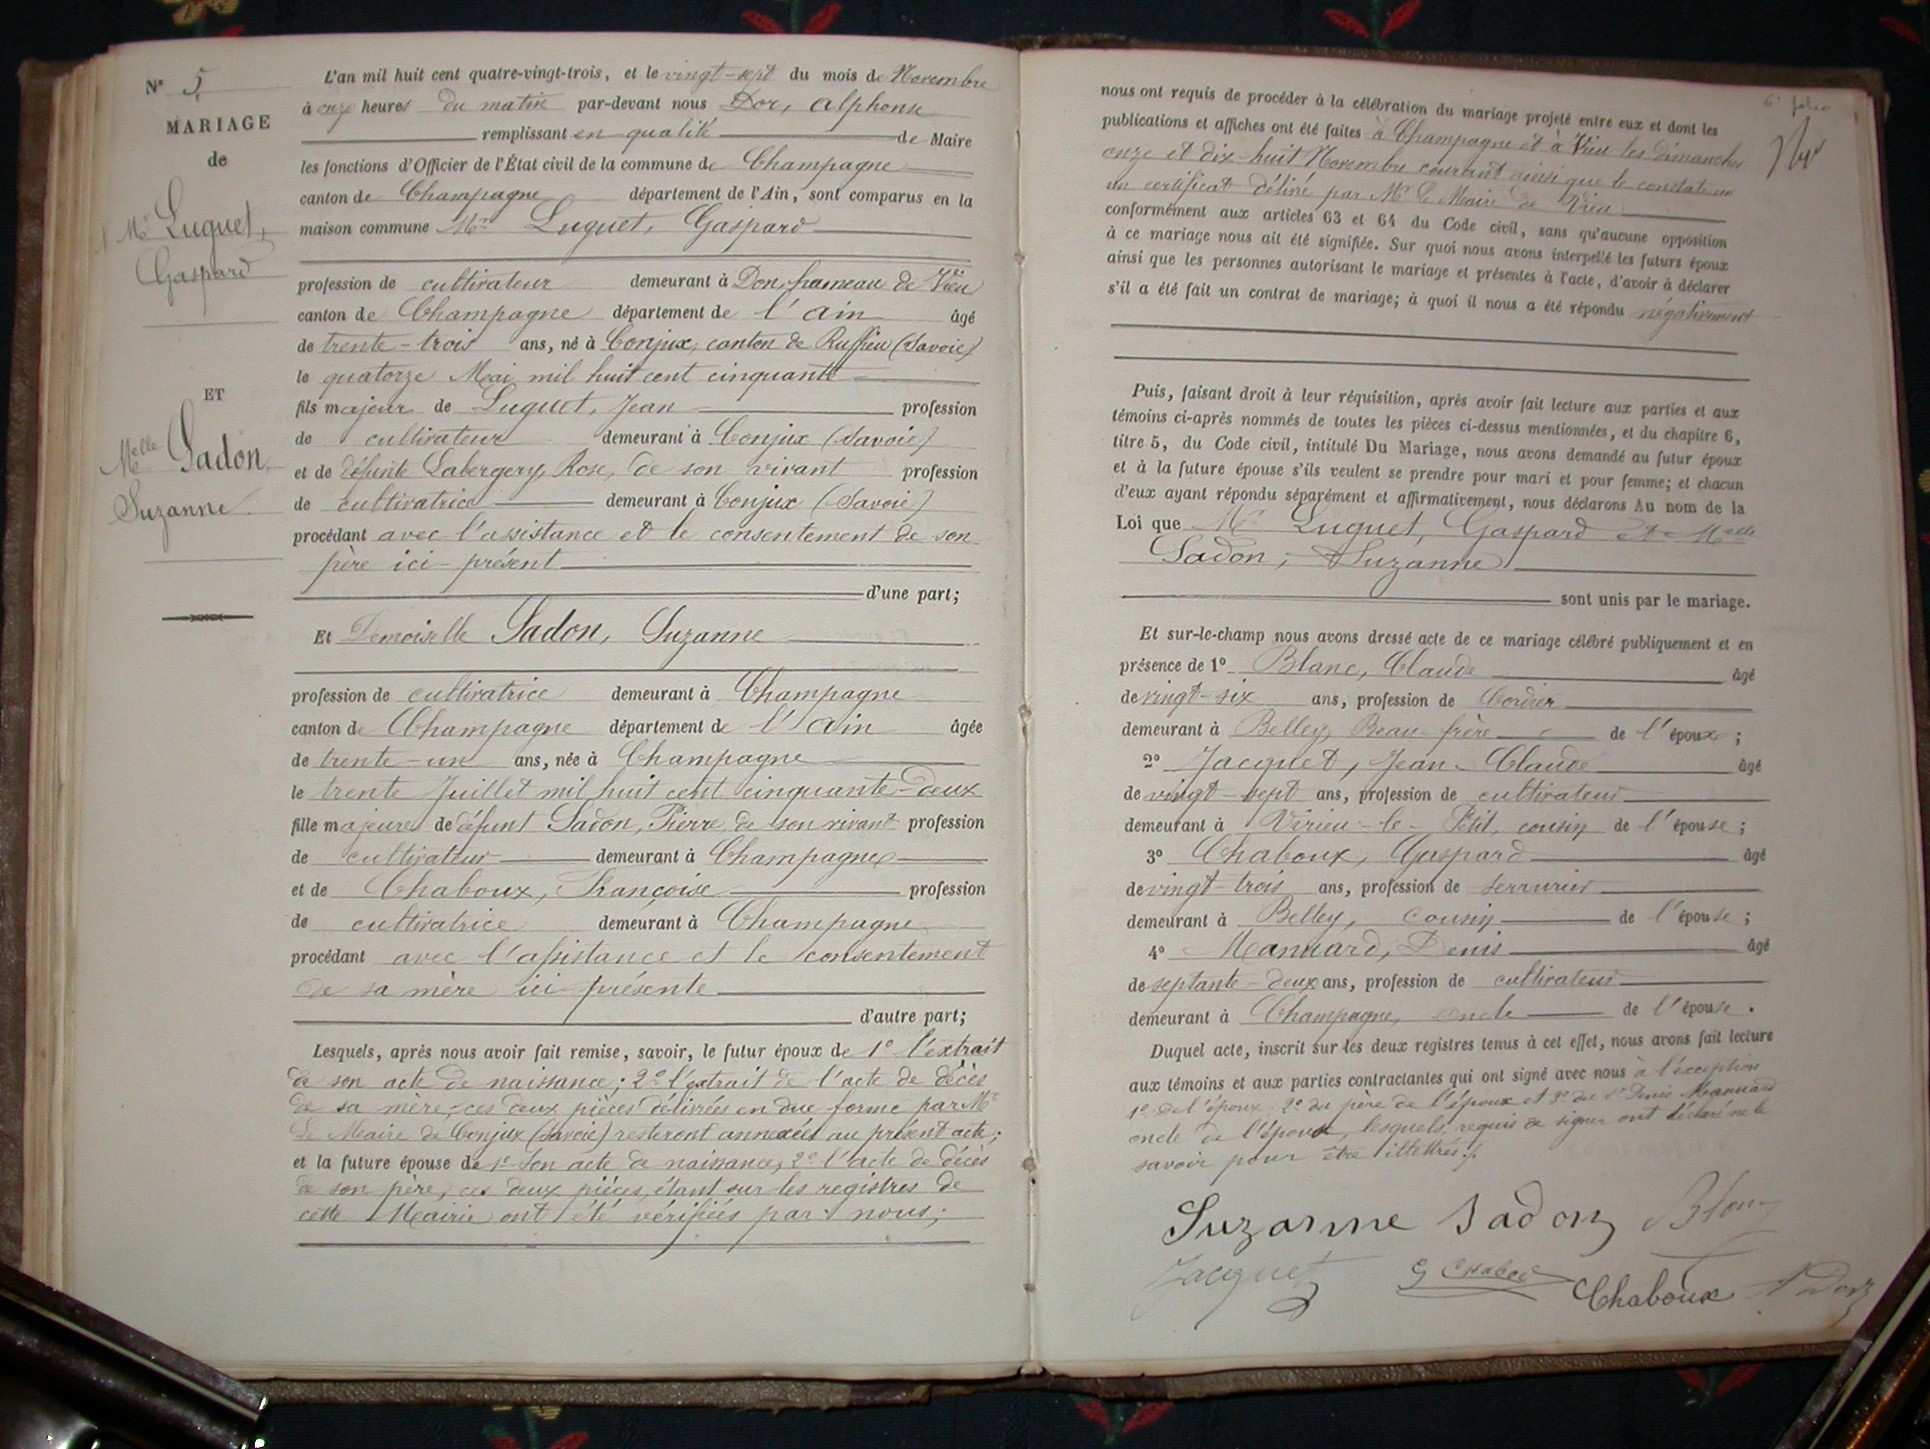 N° 5
MARIAGE
de
Mr Luquet,
Gaspard
ET
Melle Sadon,
Suzanne.
L'an mil huit cent quatre-vingt-trois, et le vingt-sept du mois de Novembre
à onze heures du matin par-devant nous Dor, Alphonse
remplissant en qualité de Maire
les fonctions d'Officier de l'État civil de la commune de Champagne
canton de Champagne département de l'Ain, sont comparus en la
maison commune Mr Luquet, Gaspard
profession de cultivateur demeurant à Don, hameau de Vieu
canton de Champagne département de l'Ain âgé
de trente-trois ans, né à Conjux, canton de Ruffieu (Savoie)
le quatorze Mai mil huit cent cinquante
fils majeur de Luquet, Jean profession
de cultivateur demeurant à Conjux (Savoie)
et de défunte Labergery, Rose, de son vivant profession
de cultivatrice demeurant à Conjux (Savoie)
procédant avec l'assistance et le consentement de son
père ici présent
d'une part;
Et Demoiselle Sadon, Suzanne
profession de cultivatrice demeurant à Champagne
canton de Champagne département de l'Ain âgée
de trente-un ans, née à Champagne
le trente Juillet mil huit cent cinquante-deux
fille majeure de défunt Sadon, Pierre de son vivant profession
de cultivateur demeurant à Champagne
et de Chaboux, Françoise profession
de cultivatrice demeurant à Champagne
procédant avec l'assistance et le consentement
de sa mère ici présente
d'autre part;
Lesquels, après nous avoir fait remise, savoir, le futur époux de 1° l'extrait
de son acte de naissance; 2° l'extrait de l'acte de décès
de sa mère, ces deux pièces délivrées en due forme par Mr
Le Maire de Conjux (Savoie) resteront annexées au présent acte;
et la future épouse de 1° Son acte de naissance, 2° l'acte de décès
de son père, ces deux pièces, étant sur les registres de
cette Mairie ont été vérifiées par nous;
6e folio
nous ont requis de procéder à la célébration du mariage projeté entre eux et dont les
publications et affiches ont été faites à Champagne et à Vieu les dimanches
onze et dix-huit Novembre courant ainsi que le constate
un certificat délivré par Mr le Maire de Vieu
conformément aux articles 63 et 64 du Code civil, sans qu'aucune opposition
à ce mariage nous ait été signifiée. Sur quoi nous avons interpellé les futurs époux
ainsi que les personnes autorisant le mariage et présentes à l'acte, d'avoir à déclarer
s'il a été fait un contrat de mariage; à quoi il nous a été répondu négativement
Puis, faisant droit à leur réquisition, après avoir fait lecture aux parties et aux
témoins ci-après nommés de toutes les pièces ci-dessus mentionnées, et du chapitre 6,
titre 5, du Code civil, intitulé Du Mariage, nous avons demandé au futur époux
et à la future épouse s'ils veulent se prendre pour mari et pour femme; et chacun
d'eux ayant répondu séparément et affirmativement, nous déclarons Au nom de la
Loi que Mr Luquet, Gaspard et Melle
Sadon, Suzanne
sont unis par le mariage.
Et sur-le-champ nous avons dressé acte de ce mariage célébré publiquement et en
présence de 1° Blanc, Claude âgé
de vingt-six ans, profession de Cordier
demeurant à Belley, Beau frère de l'époux;
2° Jacquet, Jean-Claude âgé
de vingt-sept ans, profession de cultivateur
demeurant à Virieu-le-Petit, cousin de l'épouse;
3° Chaboux, Gaspard âgé
de vingt-trois ans, profession de serrurier
demeurant à Belley, cousin de l'épouse;
4° Mannard, Denis âgé
de septante-deux ans, profession de cultivateur
demeurant à Champagne, oncle de l'épouse.
Duquel acte, inscrit sur les deux registres tenus à cet effet, nous avons fait lecture
aux témoins et aux parties contractantes qui ont signé avec nous à l'exception
1° de l'époux, 2° du père de l'époux et 3° du Sr Denis Mannard
oncle de l'épouse, lesquels requis de signer ont déclaré ne le
savoir pour être illettrés.
Suzanne Sadon Blanc
Jacquet G Chaboux Chaboux A Dor